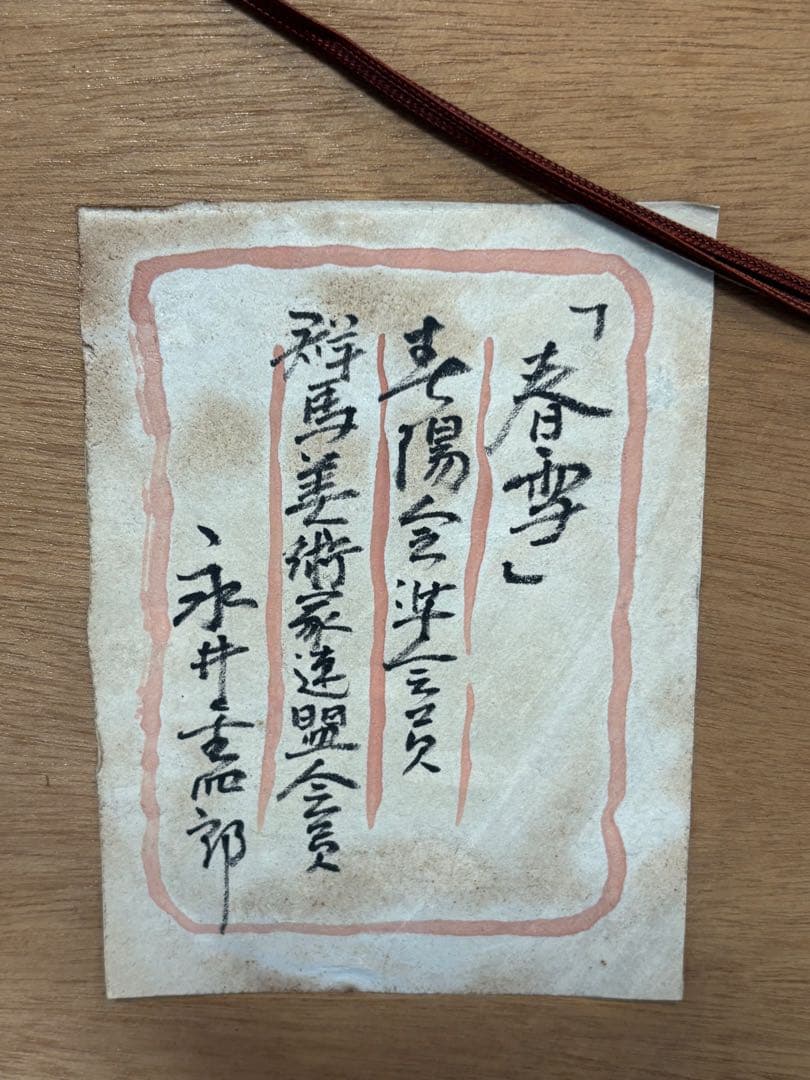 「春雪」
春陽会準会員
群馬美術家連盟会員
永井圭四郎